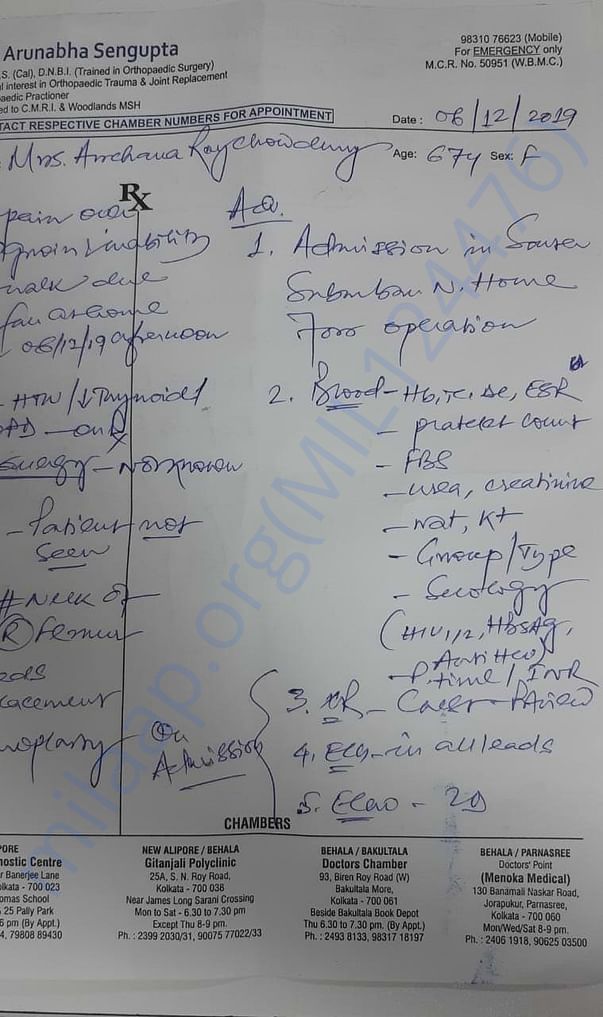 Arunabha Sengupta
S. (Cal), D.N.B.I. (Trained in Orthopaedic Surgery)
al interest in Orthopaedic Trauma & Joint Replacement
aedic Practioner
ed to C.M.R.I. & Woodlands MSH
98310 76623 (Mobile)
For EMERGENCY only
M.C.R. No. 50951 (W.B.M.C.)
TACT RESPECTIVE CHAMBER NUMBERS FOR APPOINTMENT
Date : 06/12/2019
Mrs. Archana Roychowdhury Age: 67y Sex: F
Rx
pain over
groin & inability
walk due
fall at home
06/12/19 afternoon
HTN / ↓Thyroid
on Rx
Not known
- Patient not
seen
# Neck of
(R) femur
eeds
lacement
roplasty
On
Admission
Adv.
1. Admission in
Suburban N. Home
For operation
2. Blood - Hb, Tc, Dc, ESR
- platelet count
- FBS
- urea, creatinine
- Na+, K+
- Group/Type
- Serology
(HIV 1/2, HbsAg,
Anti HCV)
- P.time / INR
3. XR - Chest - PA view
4. ECG - in all leads
5. Echo - 2D
CHAMBERS
PORE
nostic Centre
r Banerjee Lane
olkata - 700 023
omas School
25 Pally Park
6 pm (By Appt.)
4, 79808 89430
NEW ALIPORE / BEHALA
Gitanjali Polyclinic
25A, S. N. Roy Road,
Kolkata - 700 038
Near James Long Sarani Crossing
Mon to Sat - 6.30 to 7.30 pm
Except Thu 8-9 pm.
Ph. : 2399 2030/31, 90075 77022/33
BEHALA / BAKULTALA
Doctors Chamber
93, Biren Roy Road (W)
Bakultala More,
Kolkata - 700 061
Beside Bakultala Book Depot
Thu 6.30 to 7.30 pm. (By Appt.)
Ph. : 2493 8133, 98317 18197
BEHALA / PARNASREE
Doctors' Point
(Menoka Medical)
130 Banamali Naskar Road,
Jorapukur, Parnasree,
Kolkata - 700 060
Mon/Wed/Sat 8-9 pm.
Ph. : 2406 1918, 90625 03500
milaap.org(MIL124476)